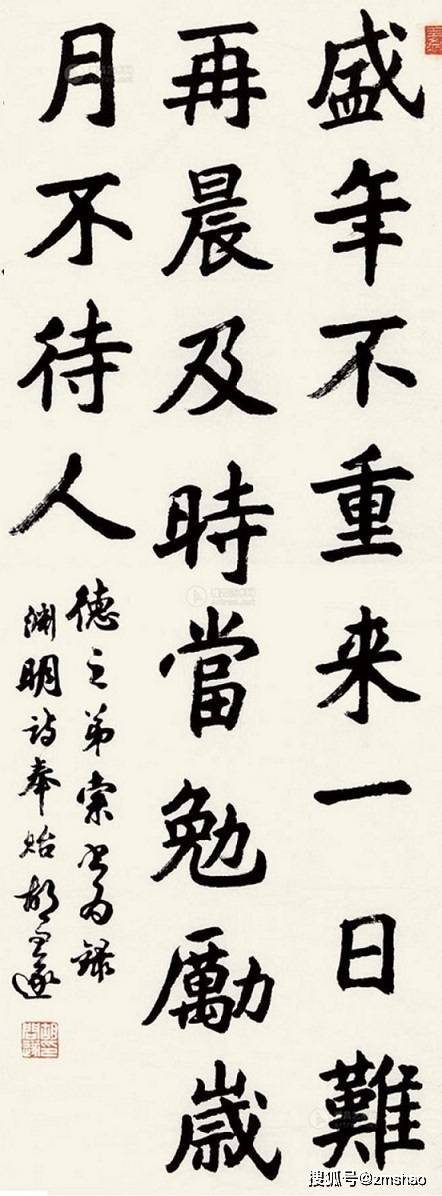 盛年不重来一日難
再晨及時當勉勵歳
月不待人
德之弟索书為録
淵明诗奉贻胡问遂
搜狐号@zmshao